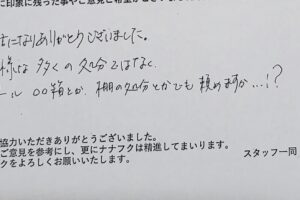 に印象に残った事やご意見ご希望がございまし
になりありがとうございました。
様な 多くの 処分ではなく、
ール 〇〇箱とか、棚の処分とかでも 頼めますか…!?
協力いただきありがとうございました。
ご意見を参考にし、更にナナフクは精進してまいります。
クをよろしくお願いいたします。
スタッフ一同